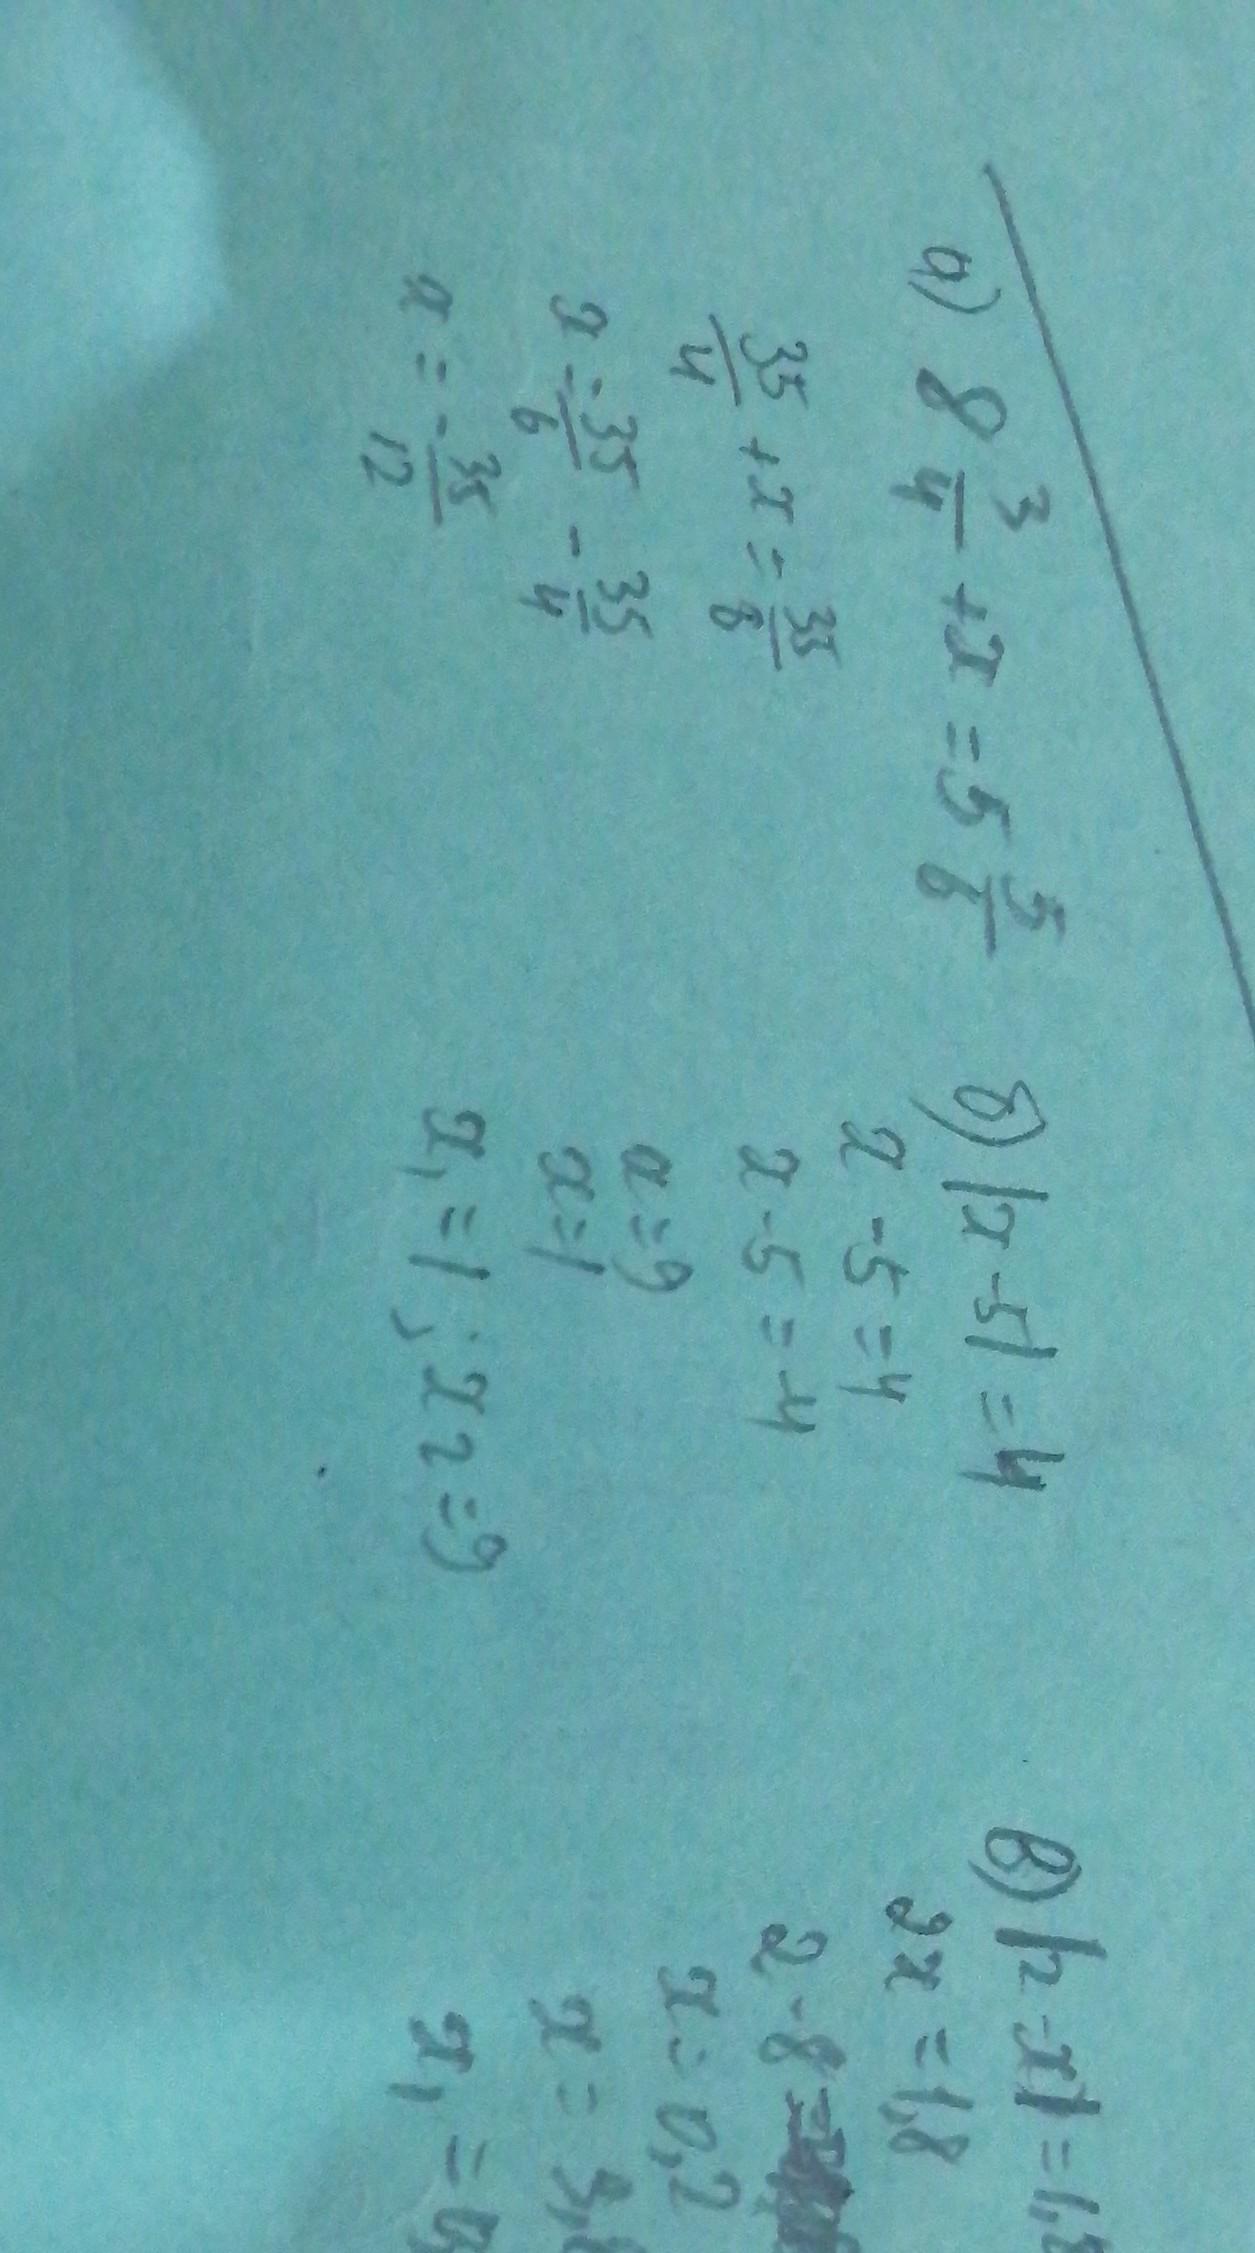 а) 8 3/4 + x = 5 5/6
35/4 + x = 35/6
x = 35/6 - 35/4
x = - 35/12
б) |x - 5| = 4
x - 5 = 4
x - 5 = -4
x = 9
x = 1
x₁ = 1 ; x₂ = 9
в) |2 - x| = 1,8
2x = 1,8
2 - 8 =
x = 0,2
x = 3,8
x₁ = 0